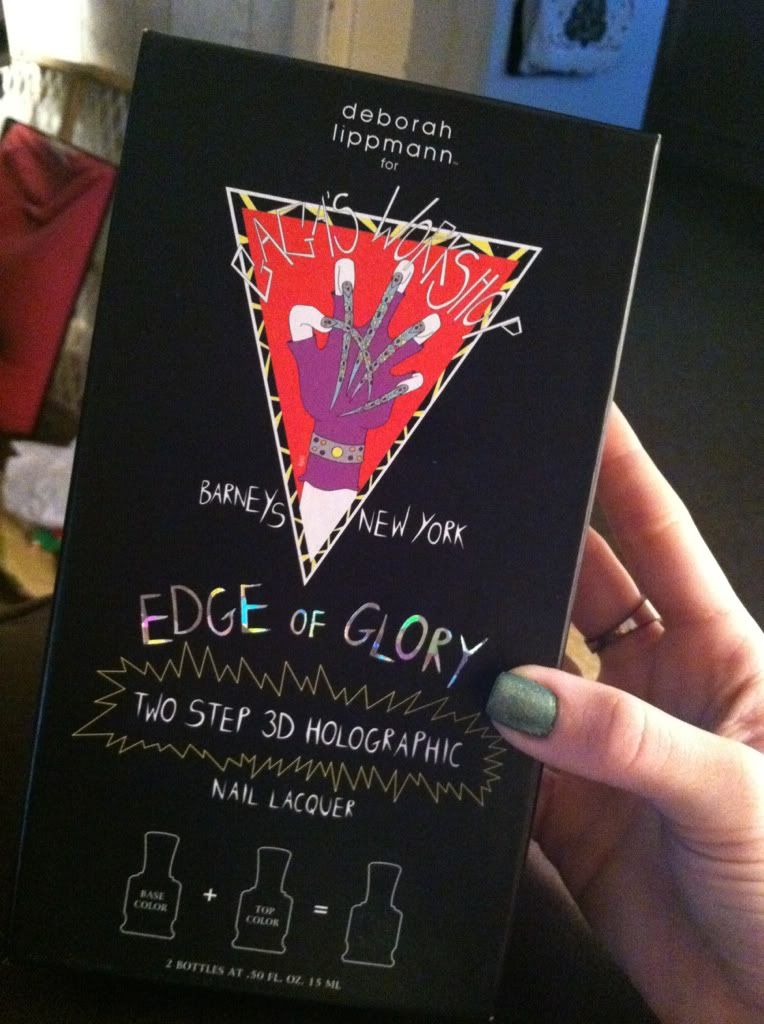 deborah
lippmann™
for
GAGA'S WORKSHOP
BARNEYS NEW YORK
EDGE OF GLORY
TWO STEP 3D HOLOGRAPHIC
NAIL LACQUER
BASE COLOR + TOP COLOR =
2 BOTTLES AT .50 FL. OZ. 15 ML